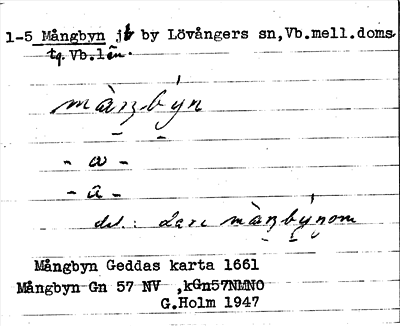 1-5 Mångbyn by Lövångers sn, Vb.mell.doms.
tg. Vb.län.
màŋbýn
- ω -
- a -
màŋbýnom
Mångbyn Geddas karta 1661
Mångbyn Gn 57 NV ,kGn57NMNO
G.Holm 1947